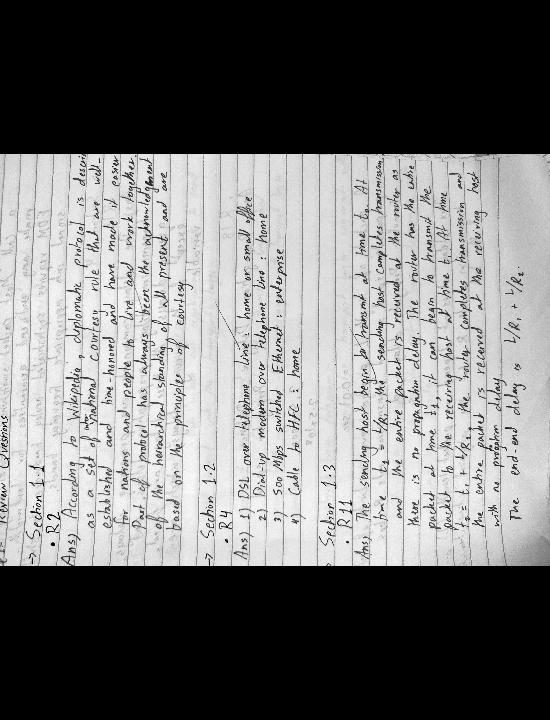 Review Questions
→ Section 1.1
• R2
Ans) According to Wikipedia, diplomatic protocol is descri
as a set of international courtesy rule that are well-
established and time-honored and have made it easier
for nations and people to live and work together.
Part of protocol has always been the acknowledgment
of the hierarchical standing of all present and are
based on the principles of courtesy
→ Section 1.2
• R4
Ans) 1) DSL over telephone line : home or small office
2) Dial-up modem over telephone line : home
3) 500 Mbps switched Ethernet : enterprise
4) Cable to HFC : home
Section 1.3
• R11
Ans) The sending host begin to transmit at time t0. At
time t1 = L/R1, the sending host completes transmission,
and the entire packet is received at the router as
there is no propagation delay. The router has the entire
packet at time t1, it can begin to transmit the
packet to the receiving host at time t1. At time
t2 = t1 + L/R2, the router completes transmission and
the entire packet is received at the receiving host
with no delay
The end-end delay is L/R1 + L/R2.